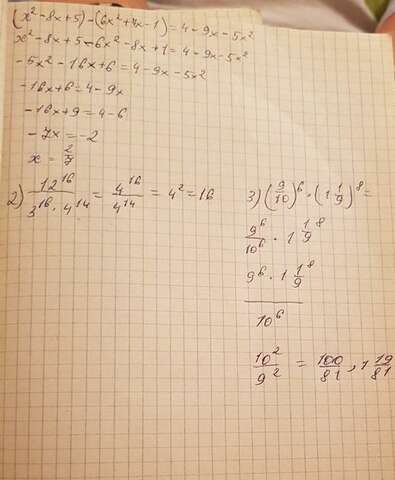 (x² - 8x + 5) - (6x² + 4x - 1) = 4 - 9x - 5x²
x² - 8x + 5 - 6x² - 8x + 1 = 4 - 9x - 5x²
-5x² - 16x + 6 = 4 - 9x - 5x²
-16x + 6 = 4 - 9x
-16x + 9 = 4 - 6
-7x = -2
x = 2/7
2) 12¹⁶/(3¹⁶ · 4¹⁴) = 4¹⁶/4¹⁴ = 4² = 16
3) (9/10)⁶ · (1 1/9)⁸ =
9⁶/10⁶ · 1 1/9⁸
9⁶ · 1 1/9⁸
10⁶
10²/9² = 100/81, 1 19/81